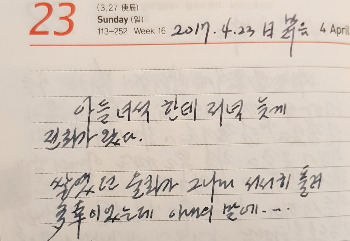 23
(3.27 庚辰)
Sunday (일)
113-252 Week 16
2017.4.23 日 맑음
4 April
아들녀석 한테 저녁 늦게
전화가 왔다.
쌓였던 울화가 그나마 서서히 풀려
오후 있는데 아내의 말에....